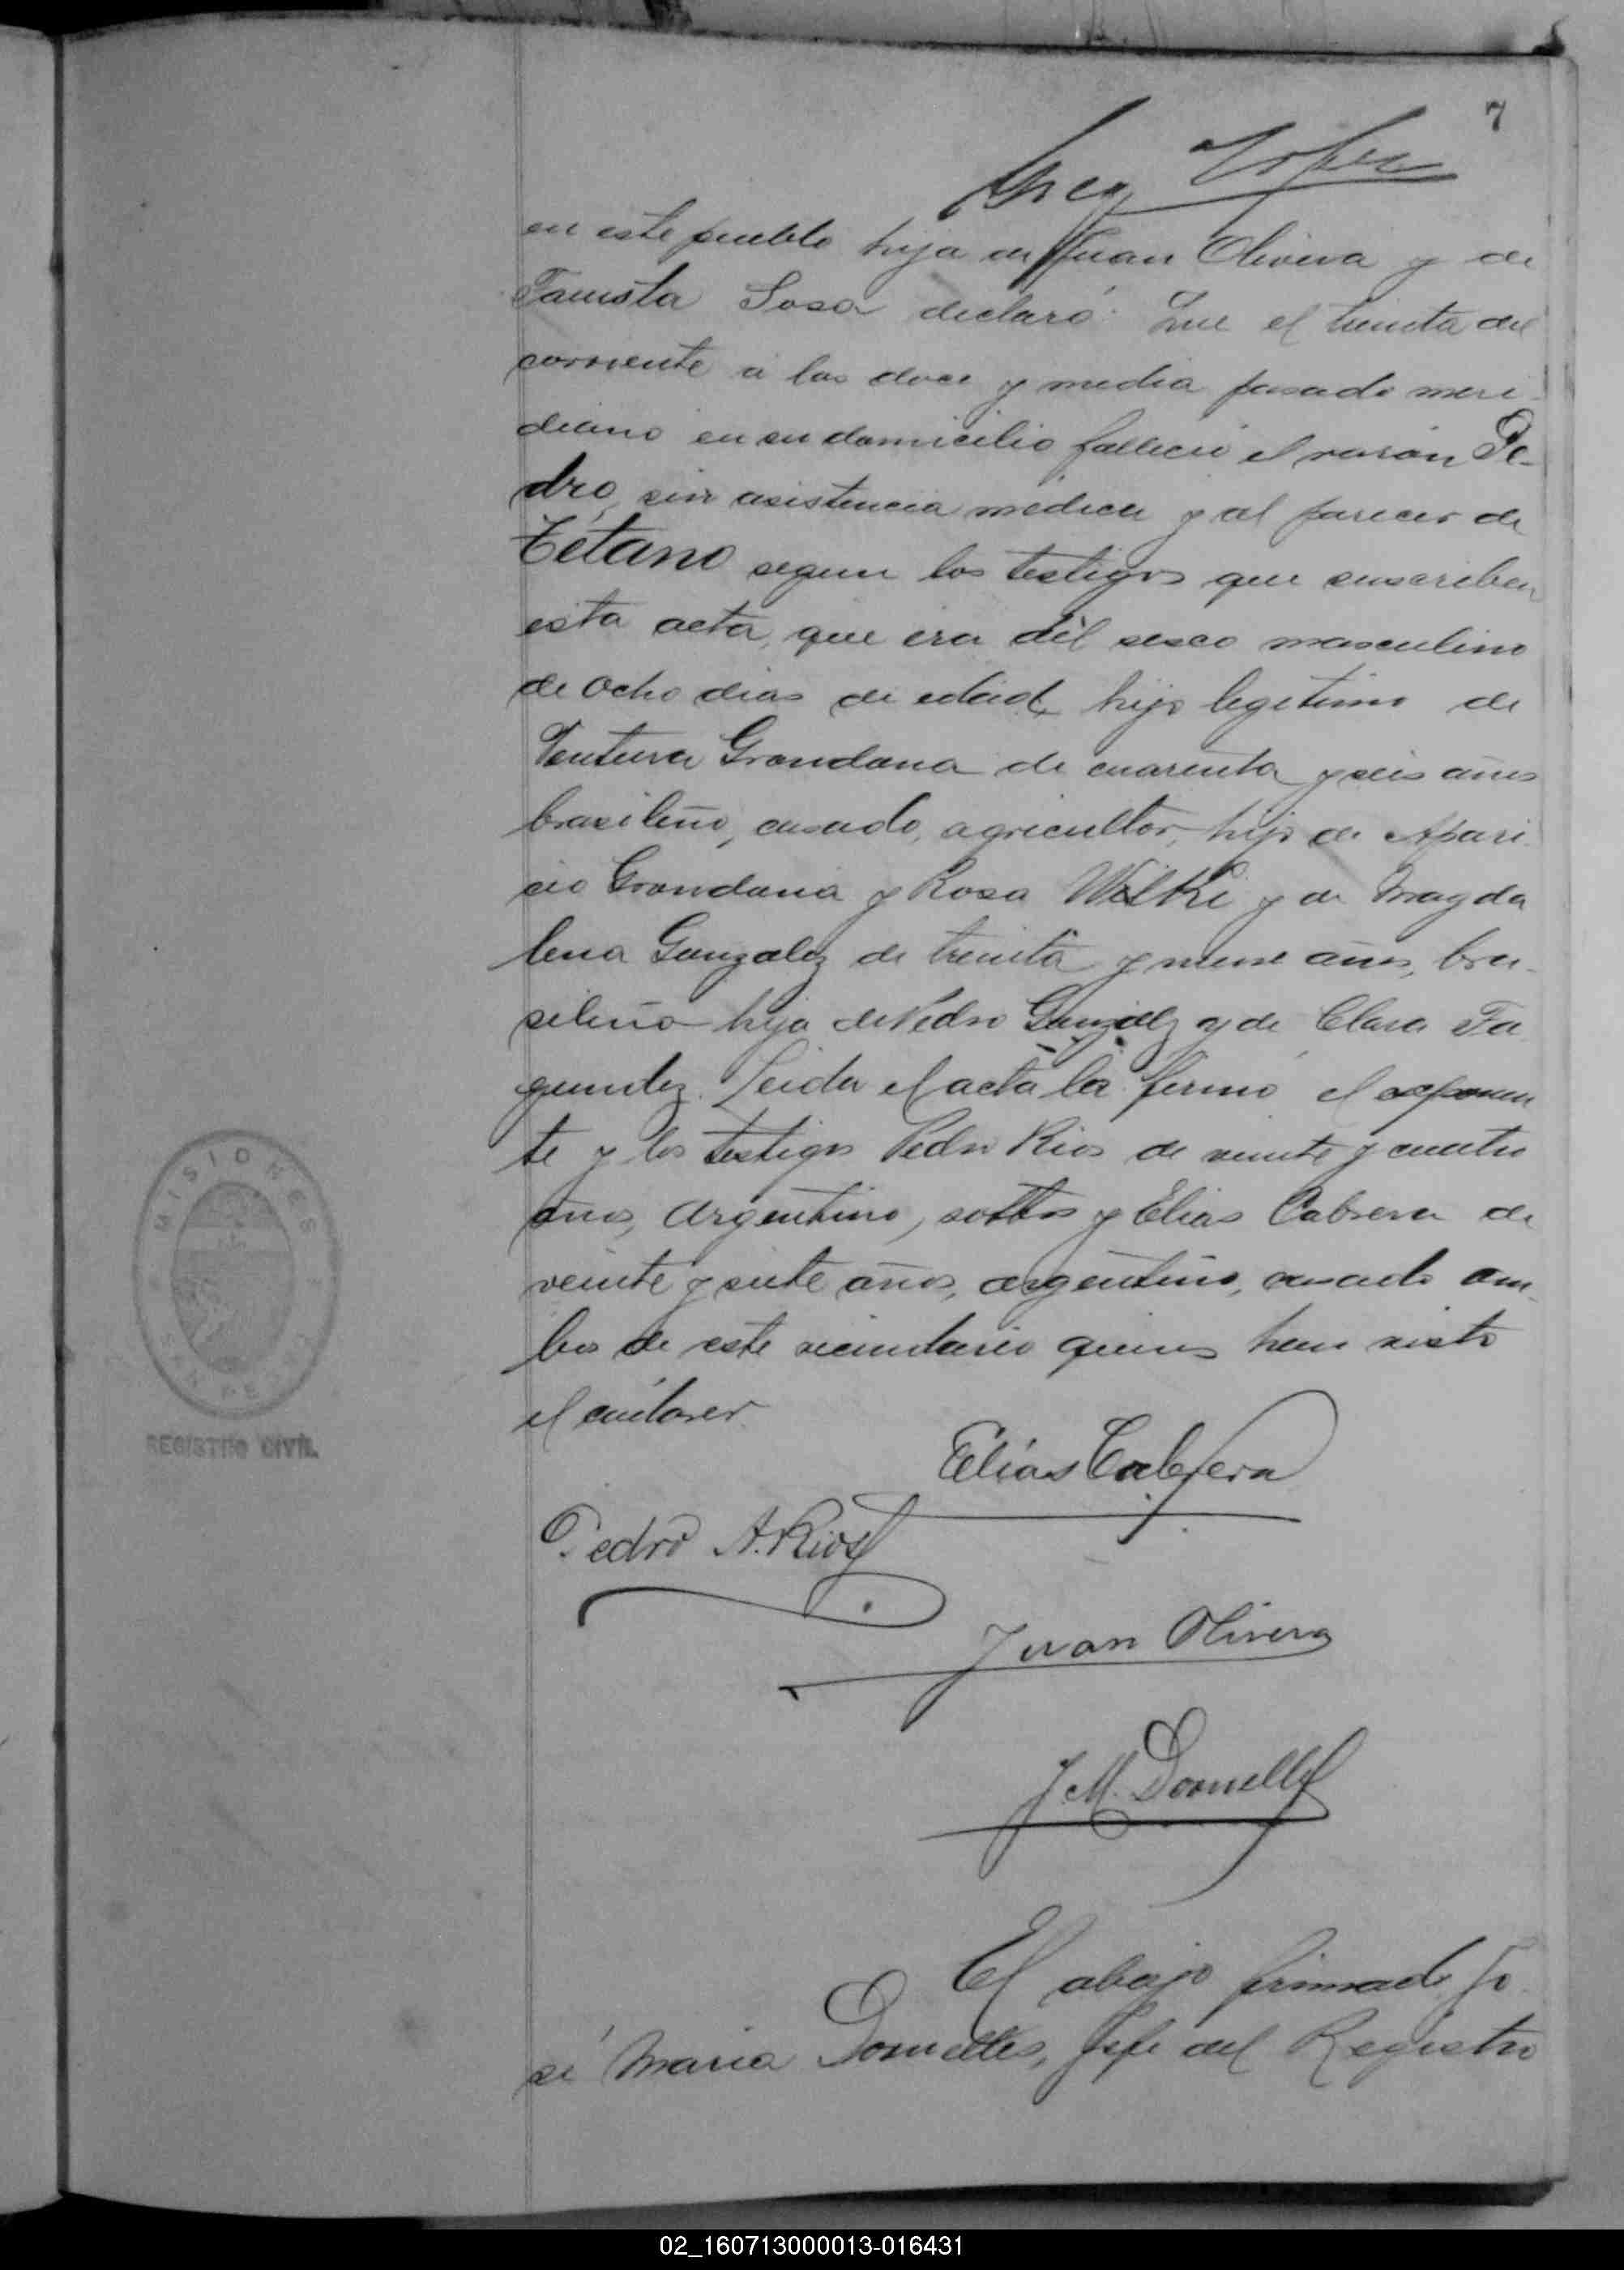 7
en este pueblo hijo de Juan Olivera y de
Fausta Sosa declaró: Que el treinta del
corriente á las doce y media pasado meri-
diano en su domicilio falleció el varón Pe-
dro, sin asistencia médica y al parecer de
Tétano segun los testigos que suscriben
esta acta, que era del sexo masculino
de ocho dias de edad, hijo legitimo de
Ventura Grandana de cuarenta y seis años
brasileño, casado, agricultor, hijo de Apari-
cio Grandana y Rosa Wilki y de Magda
lena Gonzalez de treinta y nueve años, bra-
sileña hija de Pedro Gonzalez y de Clara Fa
gundez. Leida el acta la firmó el exponen
te y los testigos Pedro Rios de veinte y cuatro
años, Argentino, soltero y Elias Cabrera de
veinte y siete años, argentino, casado am-
bos de este vecindario quienes han visto
el cadaver.
Elías Cabrera
Pedro A. Rios
Juan Olivera
J. M. Dornelles
El abajo firmado Jo
sé Maria Dornelles, Jefe del Registro
MISIONES
REGISTRO CIVIL.
02_160713000013-016431